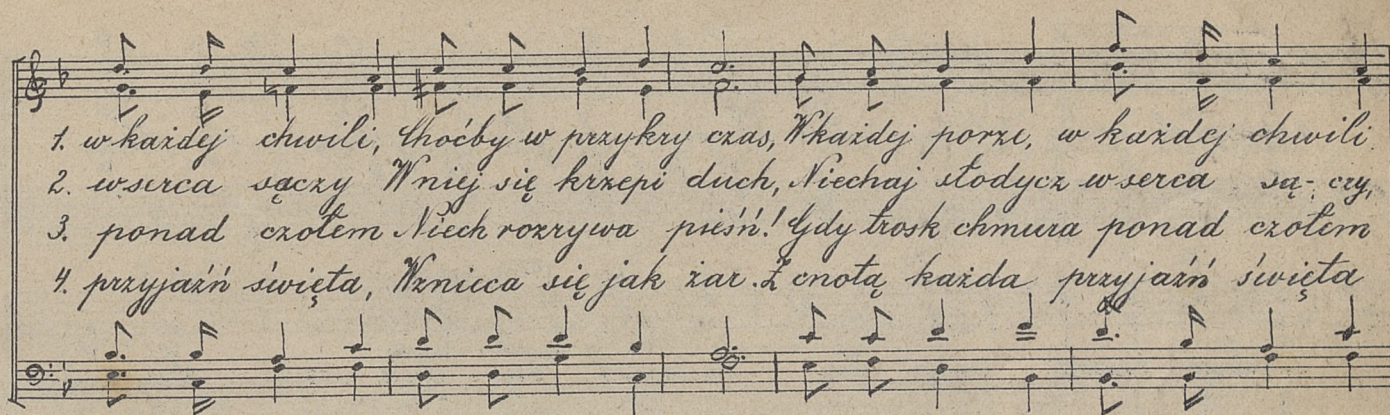 1. w każdej chwili, Choćby w przykry czas, W każdej porze, w każdej chwili
2. w serca sączy W niej się krzepi duch, Niechaj słodycz w serca są- czy,
3. ponad czołem Niech rozrywa pieśń! Gdy trosk chmura ponad czołem
4. przyjaźń święta, Wznieca się jak żar. Z cnotą każda przyjaźń święta